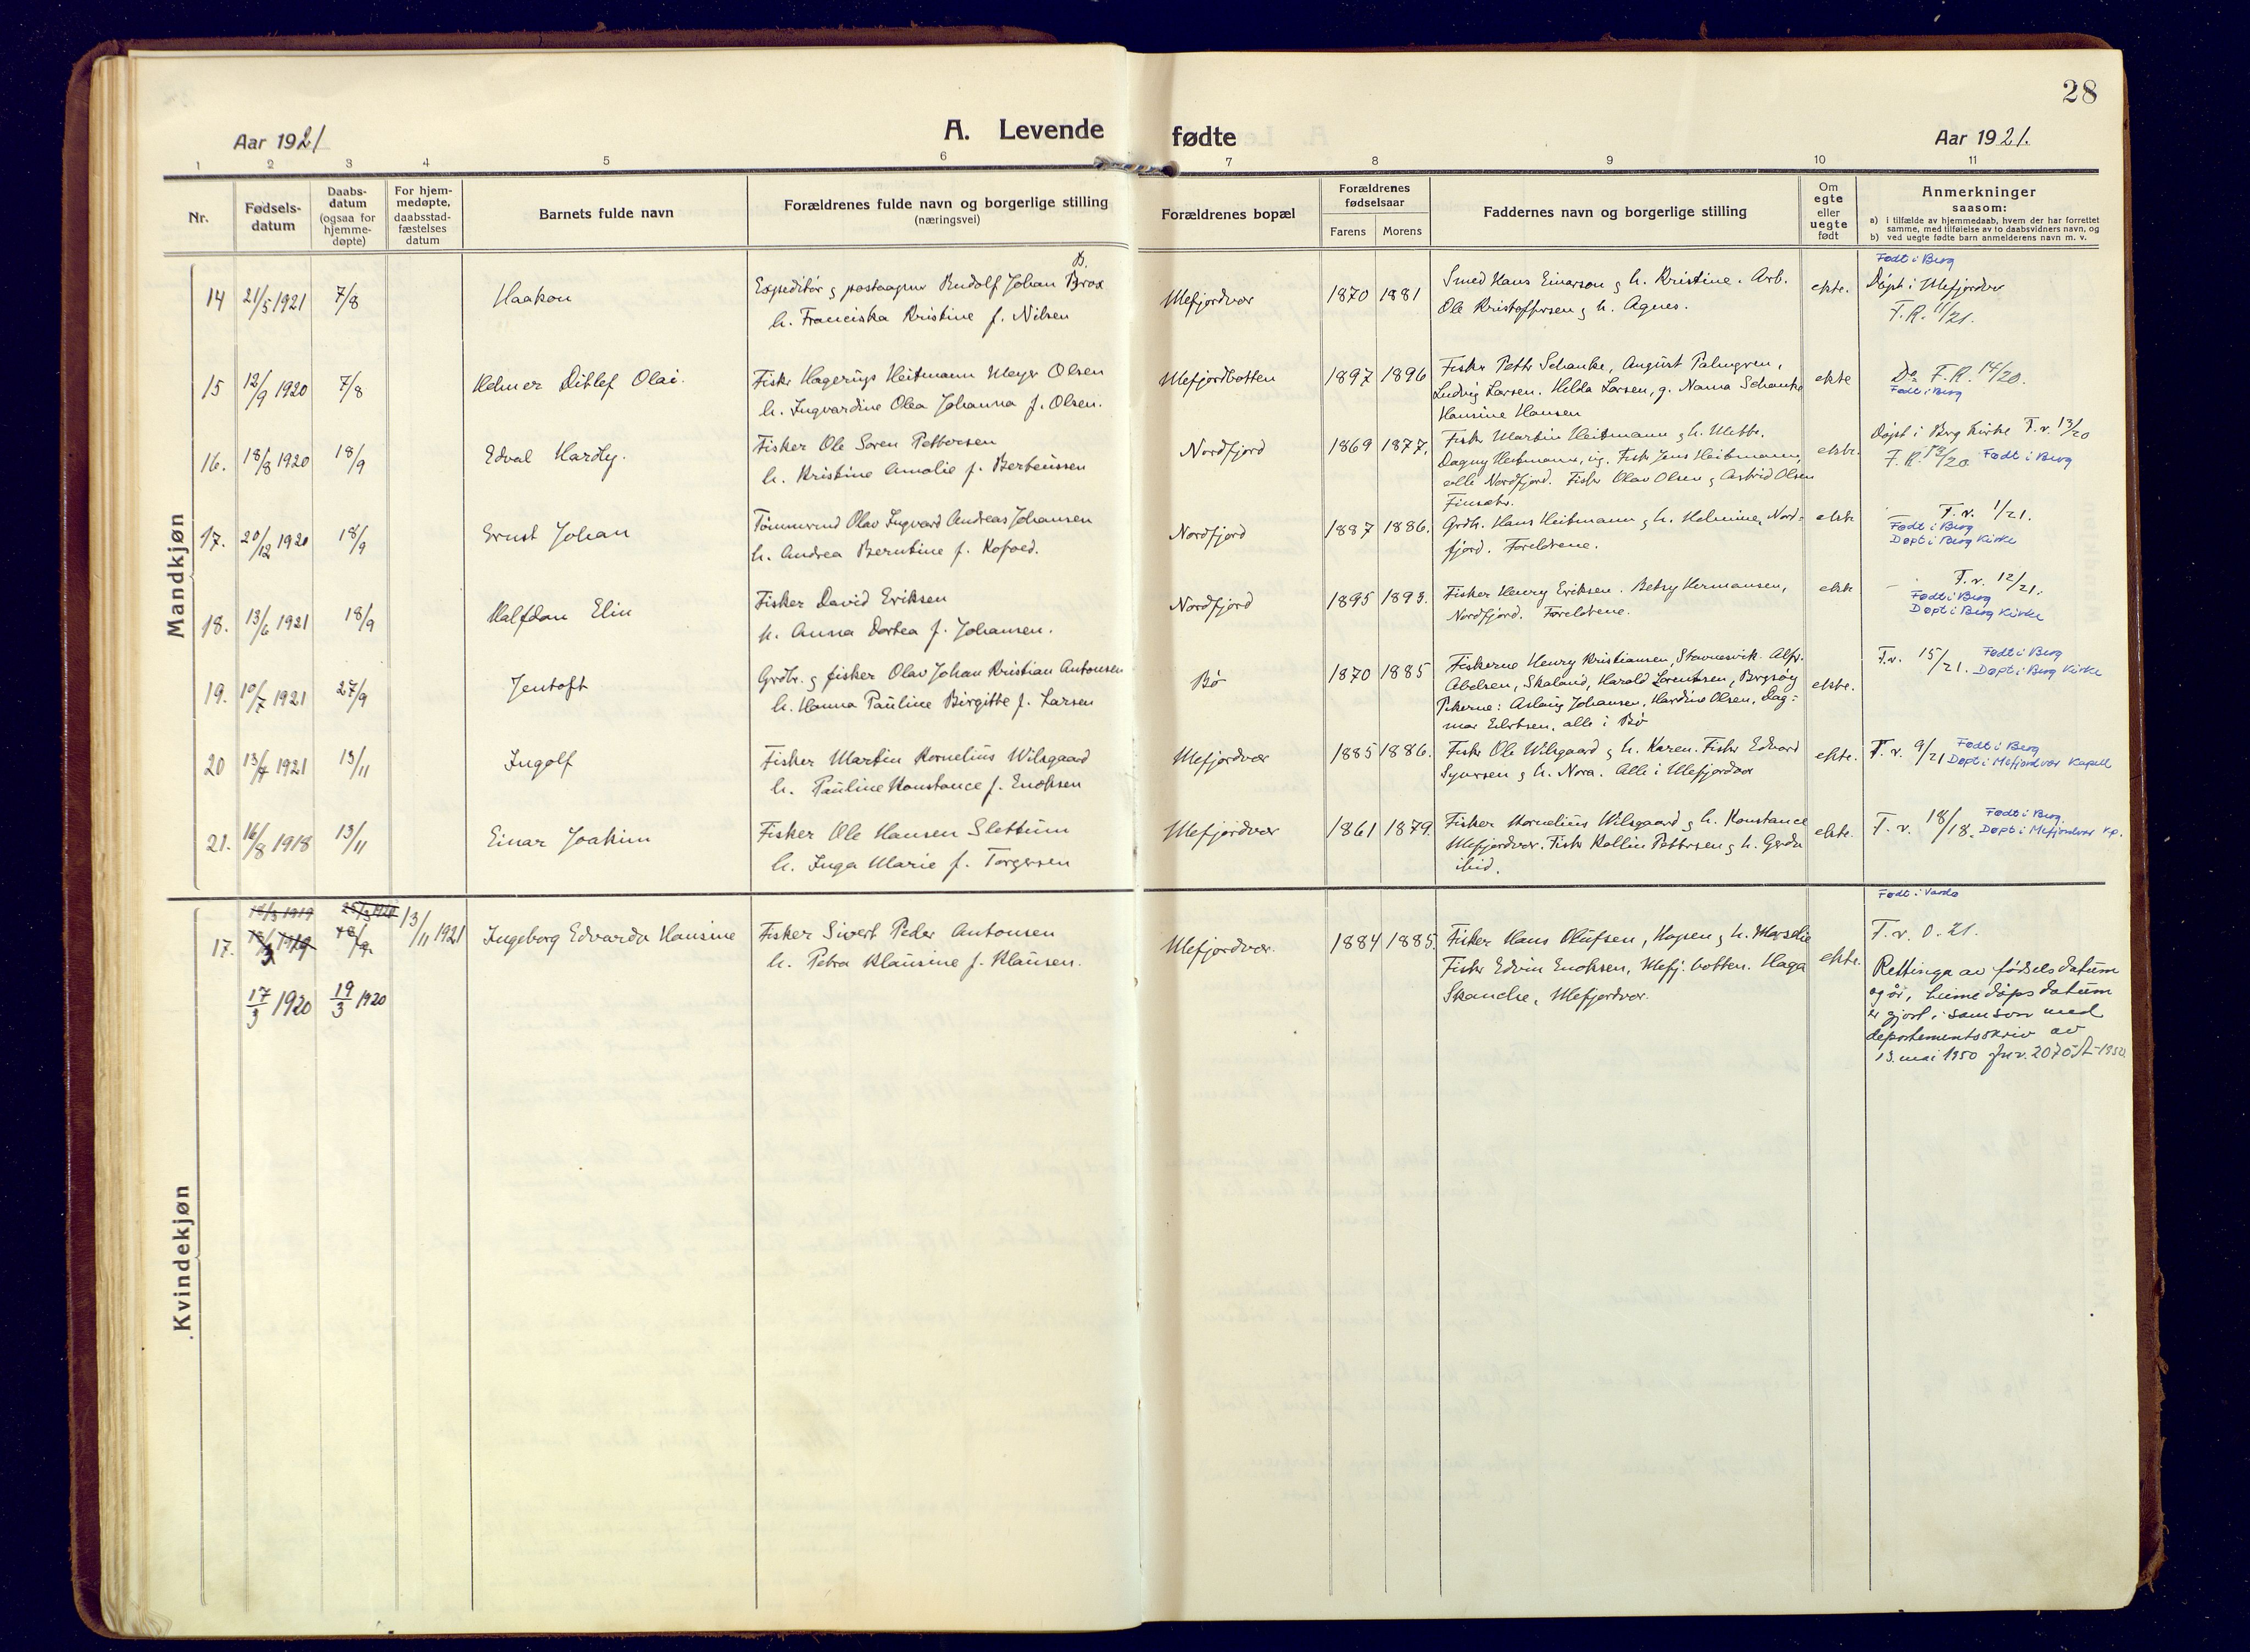 28
Aar 1921
A. Levende fødte
Aar 1921.
1 2 3 4 5 6 7 8 9 10 11
Nr.
Fødsels-
datum
Daabs-
datum
(ogsaa for
hjemme-
døpte)
For hjem-
medøpte,
daabsstad-
fæstelses
datum
Barnets fulde navn
Forældrenes fulde navn og borgerlige stilling
(næringsvei)
Forældrenes bopæl
Forældrenes
fødselsaar
Farens Morens
Faddernes navn og borgerlige stilling
Om
egte
eller
uegte
født
Anmerkninger
saasom:
a) i tilfælde av hjemmedaab, hvem der har forrettet
samme, med tilføielse av to daabsvidners navn, og
b) ved uegte fødte barn anmelderens navn m. v.
Mandkjøn
14 21/5 1921 7/8
Haakon
B.
Expeditør og postaapner Rudolf Johan Brox
h. Franciska Kristine f. Nilsen
Mefjordvær
1870 1881
Smed Hans Einerson og h. Kristine. Arb.
Ole Kristoffersen og h. Agnes.
ekte.
Født i Berg
Døpt i Mefjordvær
F.R. 11/21.
15 12/9 1920 7/8
Helmer Ditlef Olai.
Fisker Hagerup Heitmann Meyer Olsen
h. Ingvardine Olea Johanna f. Olsen.
Mefjordbotten
1897 1896
Fisker Petter Schanke, August Palmgren,
Ludvig Larsen. Hilda Larsen, g. Nanna Schanke
Hansine Hansen
ekte
Do F.R. 14/20.
Født i Berg
16. 18/8 1920 18/9
Edval Hardy.
Fisker Ole Søren Pettersen
h. Kristine Amalie f. Berteussen
Nordfjord
1869 1877.
Fisker Martin Heitmann og h. Mette.
Dagny Heitmann, ug. Fisk Jens Heitmann,
alle Nordfjord. Fisker Olav Olsen og Astrid Olsen
Finsæter.
ekte.
Døpt i Berg Kirke T.v. 13/20
F.R. 13/20. Født i Berg
17. 20/12 1920 18/9
Ernst Johan
Tømmermd Olav Ingvard Andreas Johansen
h. Andrea Berntine f. Kofoed.
Nordfjord
1887 1886.
Grdbr. Hans Heitmann og h. Helmine, Nord-
fjord. Foreldrene.
ekte
T.v. 1/21.
Født i Berg
Døpt i Berg Kirke
18. 13/6 1921 18/9
Halfdan Elin
Fisker David Eriksen
h. Anna Dortea f. Johansen.
Nordfjord
1895 1893.
Fisker Henry Eriksen. Betsy Hermansen,
Nordfjord. Foreldrene.
ekte
T.v. 12/21.
Født i Berg
Døpt i Berg Kirke
19. 10/7 1921 27/9
Jentoft
Grdbr. og fisker Olav Johan Kristian Antonsen
h. Hanna Pauline Birgitte f. Larsen
Bø
1870 1885
Fiskerne Henry Kristiansen, Stavnesvik. Alfr.
Abelsen, Skaland, Harald Lorentsen, Bergsøy
Pikerne: Aslaug Johansen, Hardine Olsen, Dag-
mar Eilertsen, alle i Bø
ekte.
T.v. 15/21. Født i Berg
Døpt i Berg Kirke
20 13/7 1921 13/11
Ingolf
Fisker Martin Kornelius Wilsgaard
h. Pauline Konstance f. Enoksen
Mefjordvær
1885 1886.
Fisker Ole Wilsgaard og h. Karen. Fisker Edvard
Syversen og h. Nora. Alle i Mefjordvær
ekte.
T.v. 9/21 Født i Berg
Døpt i Mefjordvær Kapell
21. 16/8 1918 13/11
Einar Joakim
Fisker Ole Hansen Slettum
h. Inga Marie f. Torgersen
Mefjordvær
1861 1879.
Fisker Kornelius Wilsgaard og h. Konstance
Mefjordvær. Fisker Kollin Pettersen og h. Gerda
ibid.
ekte.
T.v. 18/18. Født i Berg.
Døpt i Mefjordvær Kp.
Kvindekjøn
17. 17/3 1920 19/3 1920 13/11 1921
Ingeborg Edvarda Hansine
Fisker Sivert Peder Antonsen
h. Petra Klausine f. Klausen.
Mefjordvær.
1884 1885.
Fisker Hans Olufsen, Hopen og h. Marselie
Fisker Edvin Enoksen, Mefj. botten. Haga
Skancke, Mefjordvær.
ekte.
Født i Vardø
T.v. 0. 21.
Rettinga av fødselsdatum
og år, heimedåpsdatum
er gjort i samsvar med
departementsskriv av
13. mai 1950